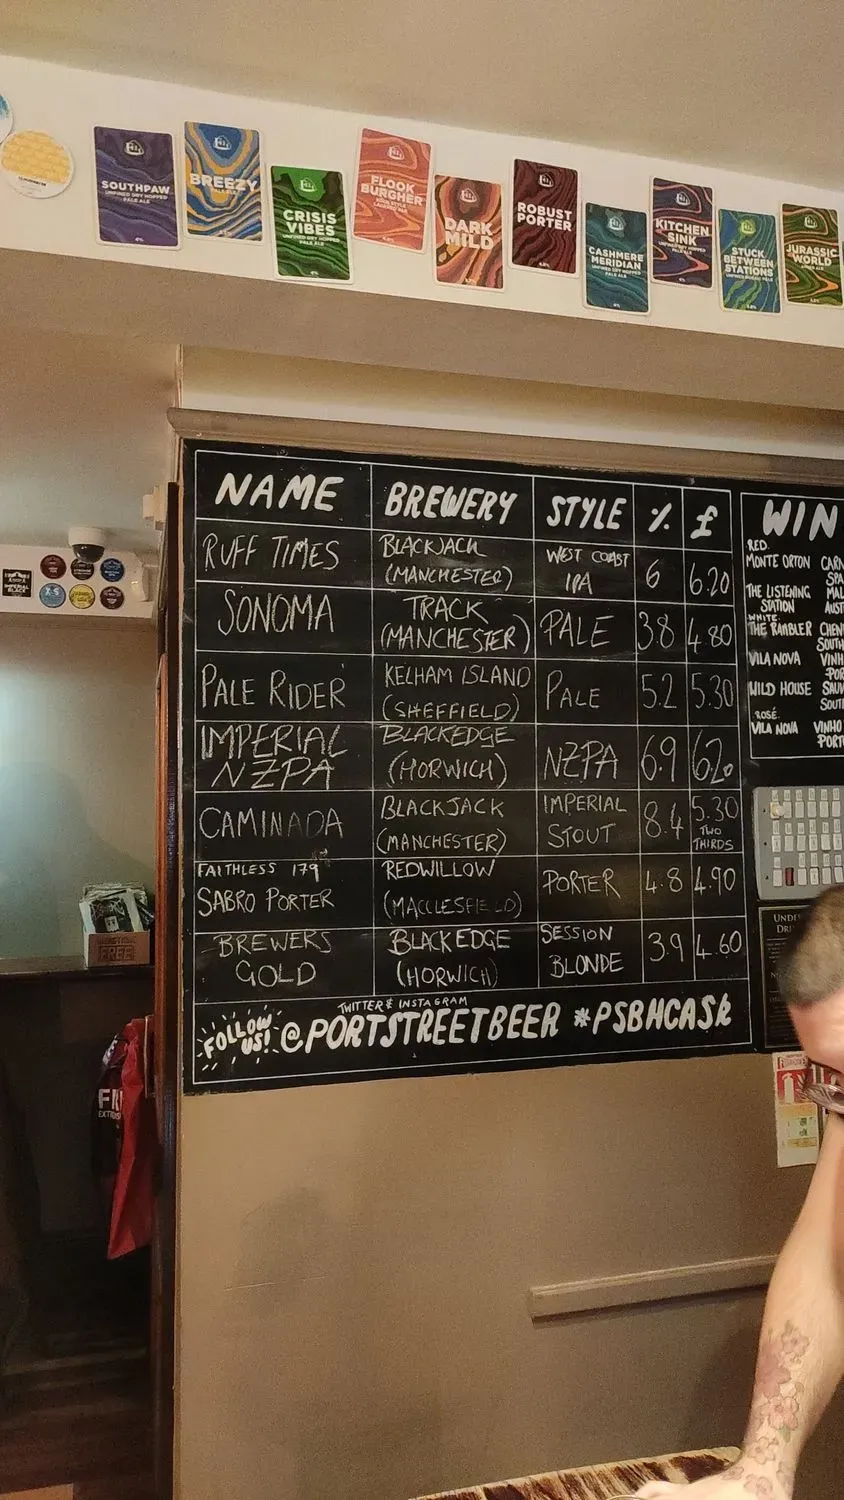 SOUTHPAW
UNFINED DRY HOPPED
PALE ALE
BREEZY
CRISIS
VIBES
UNFINED DRY HOPPED
PALE ALE
FLOOK
BURGHER
DARK
MILD
ROBUST
PORTER
CASHMERE
MERIDIAN
UNFINED DRY HOPPED
PALE ALE
KITCHEN
SINK
UNFINED DRY HOPPED
PALE ALE
STUCK
BETWEEN
STATIONS
JURASSIC
WORLD
NAME BREWERY STYLE % £
RUFF TIMES BLACKJACK (MANCHESTER) WEST COAST IPA 6 6.20
SONOMA TRACK (MANCHESTER) PALE 3.8 4.80
PALE RIDER KELHAM ISLAND (SHEFFIELD) PALE 5.2 5.30
IMPERIAL NZPA BLACKEDGE (HORWICH) NZPA 6.9 6.20
CAMINADA BLACKJACK (MANCHESTER) IMPERIAL STOUT 8.4 5.30 TWO THIRDS
FAITHLESS 179 SABRO PORTER REDWILLOW (MACCLESFIELD) PORTER 4.8 4.90
BREWERS GOLD BLACKEDGE (HORWICH) SESSION BLONDE 3.9 4.60
FOLLOW US!
TWITTER & INSTAGRAM
@PORTSTREETBEER #PSBHCASK
WIN
RED
MONTE ORTON CARN
SPA
THE LISTENING MAL
STATION AUST
WHITE
THE RAMBLER CHEN
SOUTH
VILA NOVA VINH
POR
WILD HOUSE SAUV
SOUT
ROSÉ
VILA NOVA VINHO
PORT
FREE